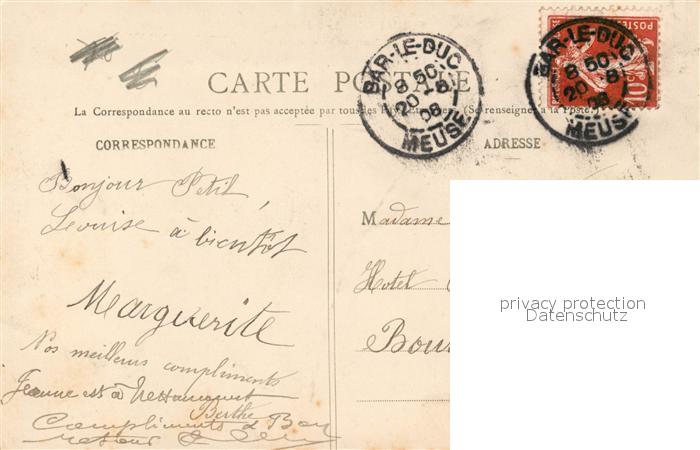 CARTE POSTALE
La Correspondance au recto n'est pas acceptée par tous les Pays Etrangers (Se renseigner à la Poste)
BAR-LE-DUC
8 50
20 -8
08
MEUSE
BAR-LE-DUC
8 50
20 8
08
MEUSE
POSTES
10
CORRESPONDANCE
ADRESSE
Bonjour Petit
Louise à bientôt
Marguerite
Nos meilleurs compliments
Jeanne est à Nettancourt
Berthe
Compliments d
retour
Madame
Hotel
Bou
privacy protection
Datenschutz